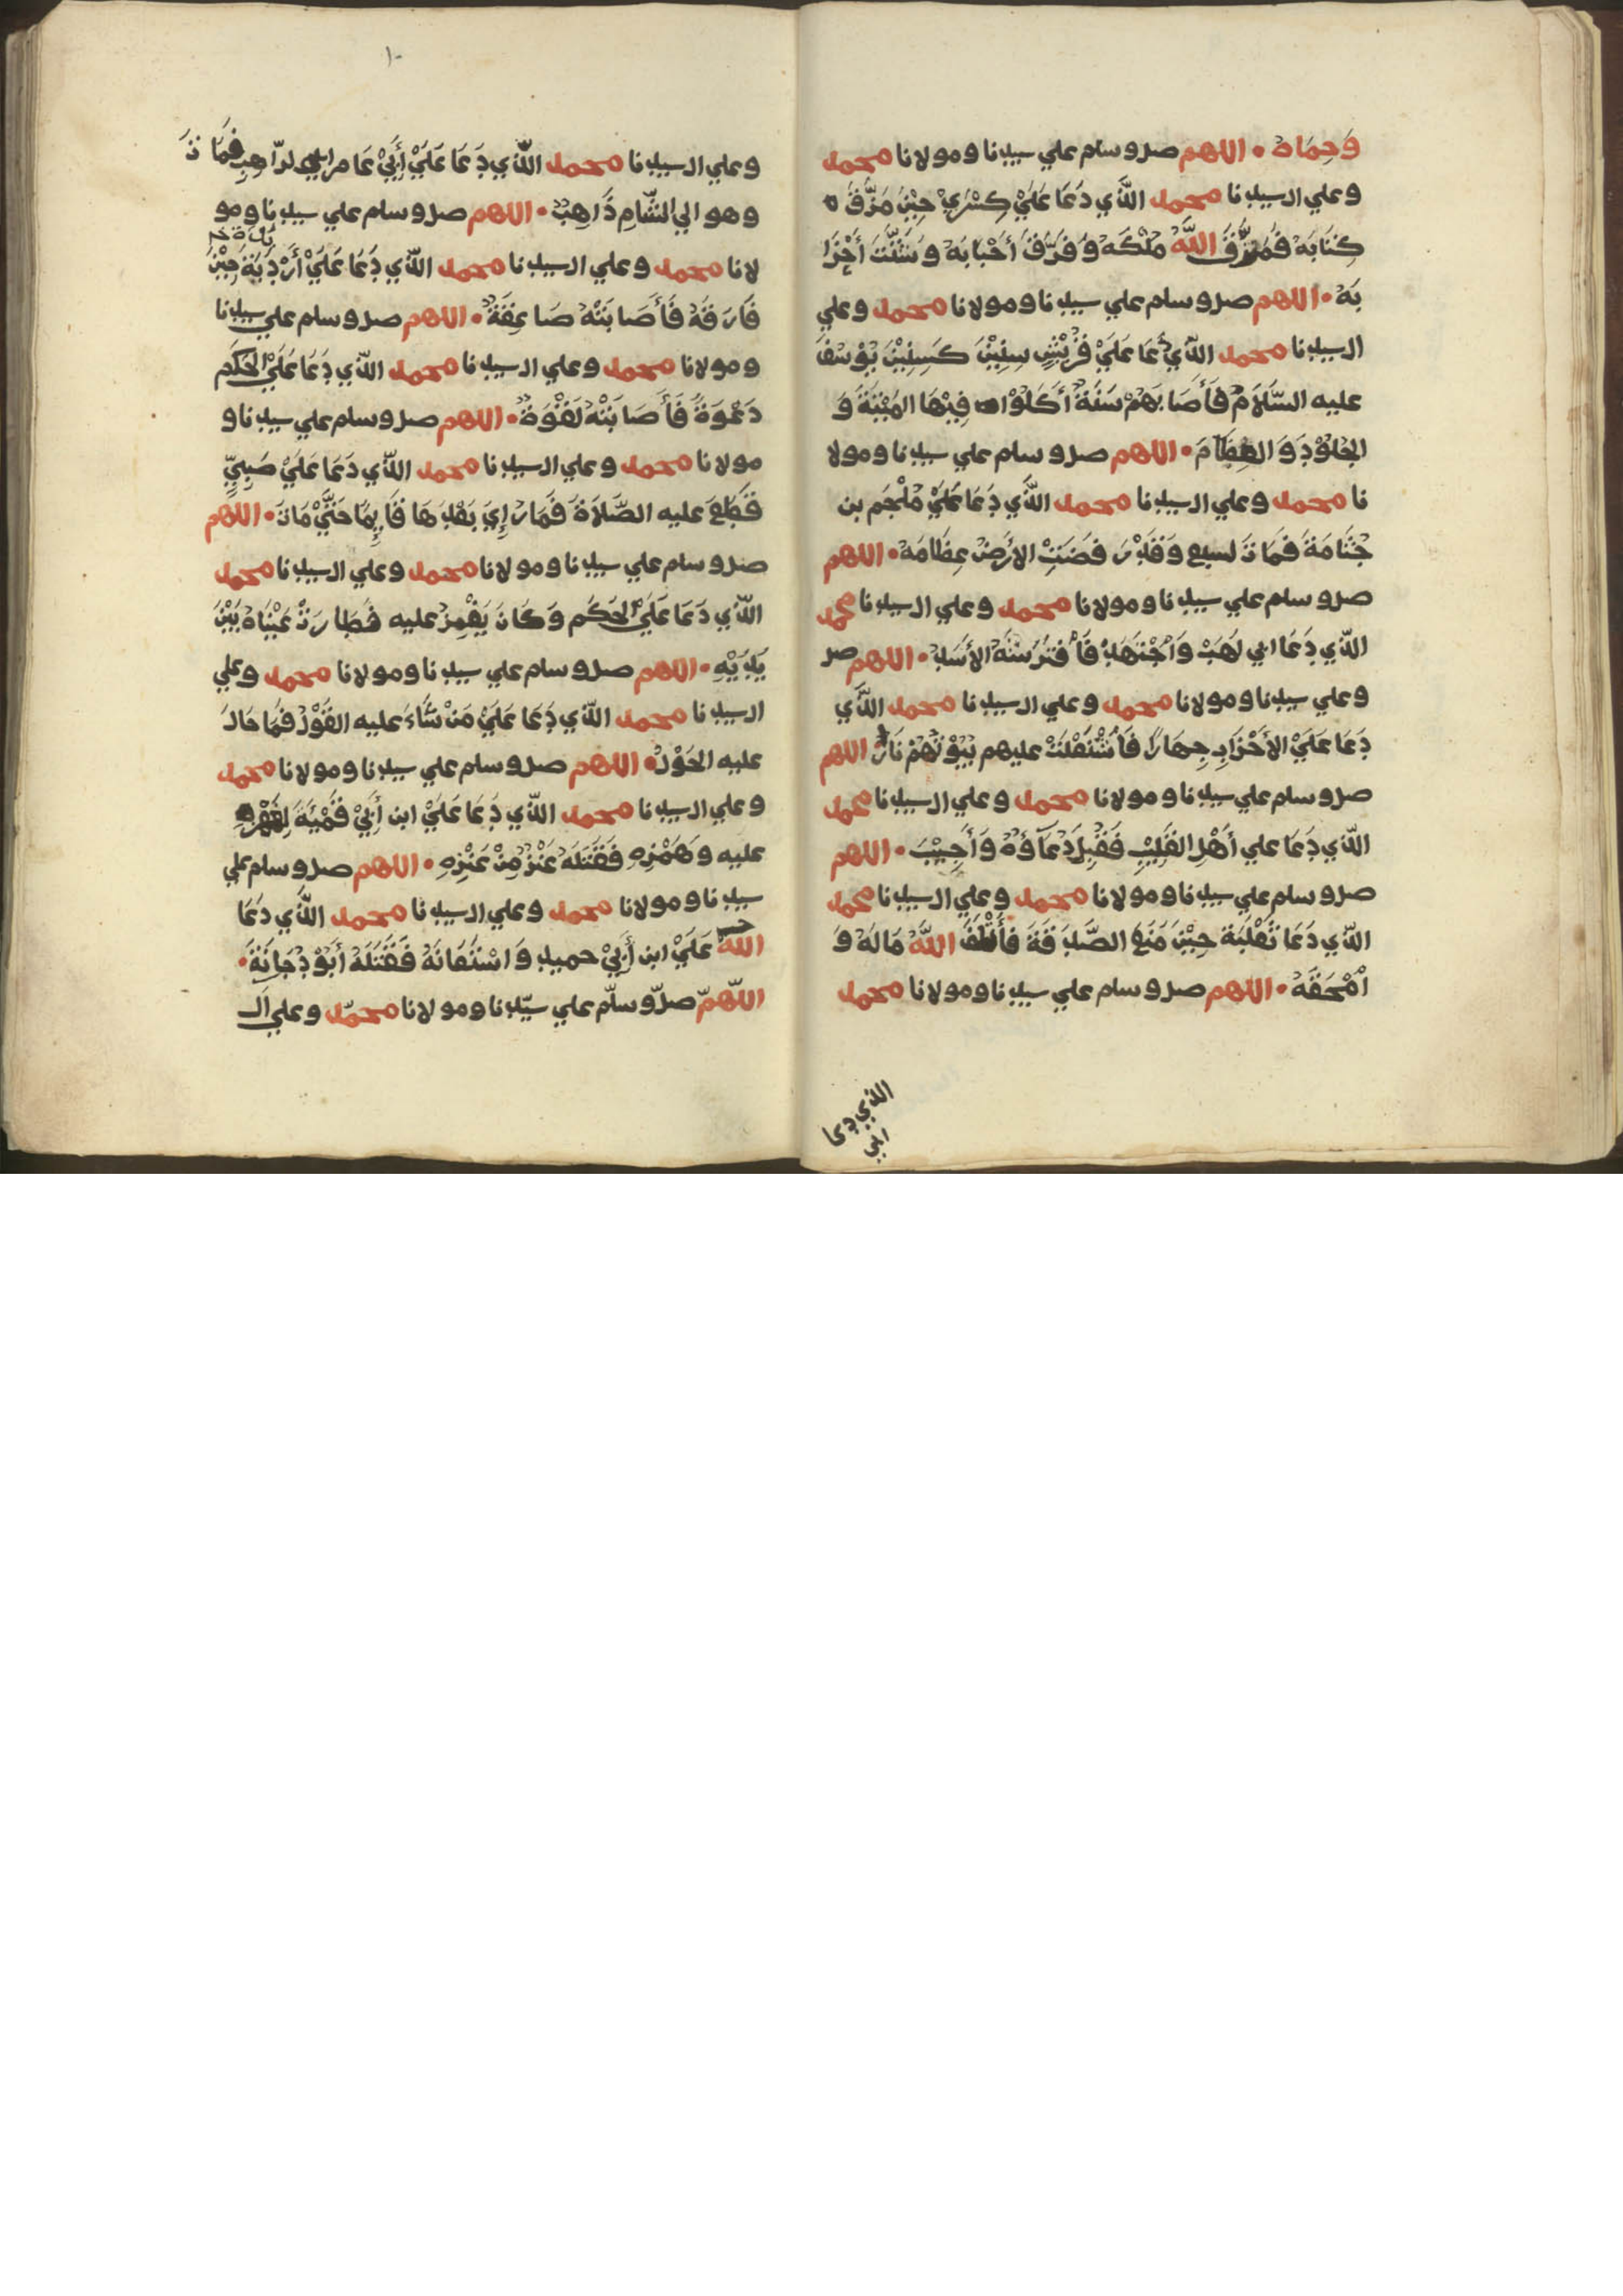 وَحِمَاهُ • اللهم صل وسلم علي سيدنا ومولانا محمد
وعلي ال سيدنا محمد الَّذي دَعَا عَلَيْ كِسْرَيْ حِيْنَ مَزَّقَ
كِتَابَهُ فَمَزَّقَ اللَّهُ مُلْكَهُ وَفَرَّقَ أَحْبَابَهُ وَشَتَّتَ أَحْزَا
بَهُ • اللهم صل وسلم علي سيدنا ومولانا محمد وعلي
ال سيدنا محمد الَّذي دَعَا عَلَيْ قُرَيْشٍ سِنِيْنَ كَسِنِيْنَ يُوْسُفَ
عليه السَّلَامُ فَأَصَابَهُمْ سَنَةٌ أَكَلُوْا فِيْهَا المَيْتَةَ وَ
الجُلُوْدَ وَالعِظَامَ • اللهم صل وسلم علي سيدنا ومولا
نا محمد وعلي ال سيدنا محمد الَّذي دَعَا عَلَيْ مُلْجَم بن
جُثَامَةَ فَمَاتَ لسبع وَقَدْ رَفَضَتِ الأَرْضُ عِظَامَهُ • اللهم
صل وسلم علي سيدنا ومولانا محمد وعلي ال سيدنا محمد
الَّذي دَعَا ابي لَهَبْ وَاجْتَهَدَ فَافْتَرَسَتْهُ الأَسَدُ • اللهم صل
وعلي سيدنا ومولانا محمد وعلي ال سيدنا محمد الَّذي
دَعَا عَلَيْ الأَحْزَابِ جِهَارًا فَاشْتَعَلَتْ عليهم بُيُوْتُهُمْ نَارًا اللهم
صل وسلم علي سيدنا ومولانا محمد وعلي ال سيدنا محمد
الَّذي دَعَا علي أَهْلِ القَلِيْبِ فَقُبِلَ دُعَآؤُهُ وَأُجِيْبَ • اللهم
صل وسلم علي سيدنا ومولانا محمد وعلي ال سيدنا محمد
الَّذي دَعَا ثَعْلَبَة حِيْنَ مَنَعَ الصَّدَقَةَ اللَّهُ مَالَهُ وَ
امْحَقَهُ • اللهم صل وسلم علي سيدنا ومولانا محمد
الذي دعا
١٠
وعلي ال سيدنا محمد الَّذي دَعَا عَلَيْ أَبِيْ عَامر الرَّاهِبِ فَمَاتَ
وهو الي الشَّامِ ذَاهِبٌ • اللهم صل وسلم علي سيدنا ومو
لانا محمد وعلي ال سيدنا محمد الَّذي دَعَا عَلَيْ أَرْبَدَ حِيْنَ
فَارَقَهُ فَأَصَابَتْهُ صَاعِقَةٌ • اللهم صل وسلم علي سيدنا
ومولانا محمد وعلي ال سيدنا محمد الَّذي دَعَا عَلَيْ الحَكَمِ
دَعْوَةً فَأَصَابَتْهُ لَقْوَةٌ • اللهم صل وسلم علي سيدنا و
مولانا محمد وعلي ال سيدنا محمد الَّذي دَعَا عَلَيْ صَبِيٍّ
قَطَعَ عليه الصَّلَاةَ فَمَارُإِيَ بَعْدَهَا قَايِمًا حَتَّيْ مَاتَ • اللهم
صل وسلم علي سيدنا ومولانا محمد وعلي ال سيدنا محمد
الَّذي دَعَا عَلَيْ الحَكَم وَكَانَ يَغْمِزُ عليه فَطَارَتْ عَيْنَاهُ بَيْنَ
يَدَيْهِ • اللهم صل وسلم علي سيدنا ومولانا محمد وعلي
ال سيدنا محمد الَّذي دَعَا عَلَيْ مَنْ شَاءَ عليه القَوْلُ فَمَا حَالَ
عليه الحَوْلُ • اللهم صل وسلم علي سيدنا ومولانا محمد
وعلي ال سيدنا محمد الَّذي دَعَا عَلَيْ ابن أَبِيْ قَمْيَةَ
عليه وَهَمْزِهِ فَقَتَلَهُ عَنْزٌ مِنْ عَنْزِهِ • اللهم صل وسلم علي
سيدنا ومولانا محمد وعلي ال سيدنا محمد الَّذي دَعَا
اللّٰه عَلَيْ ابن أَبِيْ حميد وَاسْتَعَانَهُ فَقَتَلَهُ أَبُوْ دُجَانَةَ •
اللّهمّ صلّ وسلّم علي سيّدنا ومولانا محمّد وعلي ال